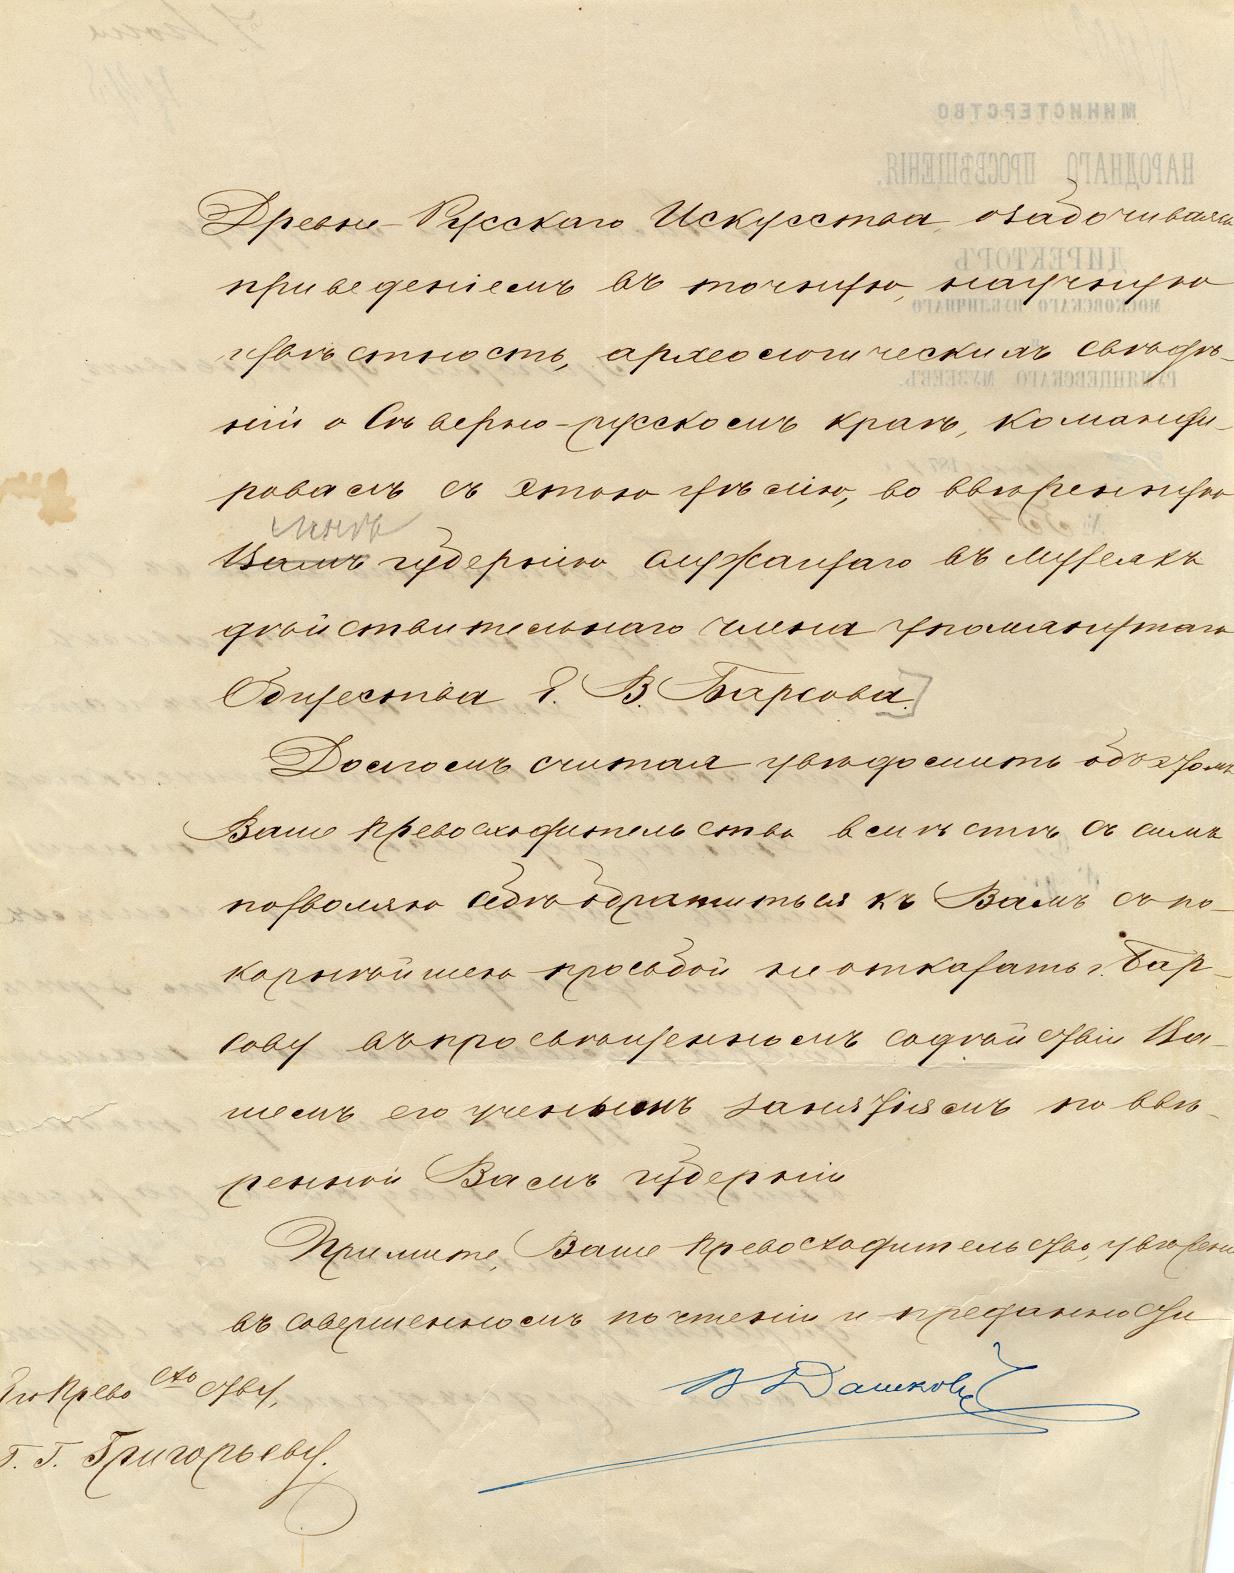 Древне-Русскаго Искусства, озабочиваясь
приведеніемъ въ точную, научную
извѣстность, археологическихъ свѣдѣ-
ній о Сѣверно-русскомъ краѣ, команди-
ровалъ съ этою цѣлію, во ввѣренную
Вамъ губернію служащаго въ Музеяхъ
дѣйствительнаго члена упомянутаго
Общества Е. В. Барсова.
Долгомъ считая увѣдомить объ этомъ
Ваше Превосходительство вмѣстѣ съ симъ
позволяю себѣ обратиться къ Вамъ съ по-
корнѣйшею просьбой не отказать г. Бар-
сову въ просвѣщенномъ содѣйствіи Ва-
шемъ его ученымъ занятіямъ по ввѣ-
ренной Вамъ губерніи
Примите, Ваше Превосходительство, увѣрені
въ совершенномъ почтеніи и преданности
В Дашковъ
Его Прево сход ству,
Г. Г. Григорьеву.
МИНИСТЕРСТВО
НАРОДНАГО ПРОСВѢЩЕНІЯ.
ДИРЕКТОРЪ
МОСКОВСКАГО ПУБЛИЧНАГО
РУМЯНЦЕВСКАГО МУЗЕЕВЪ.